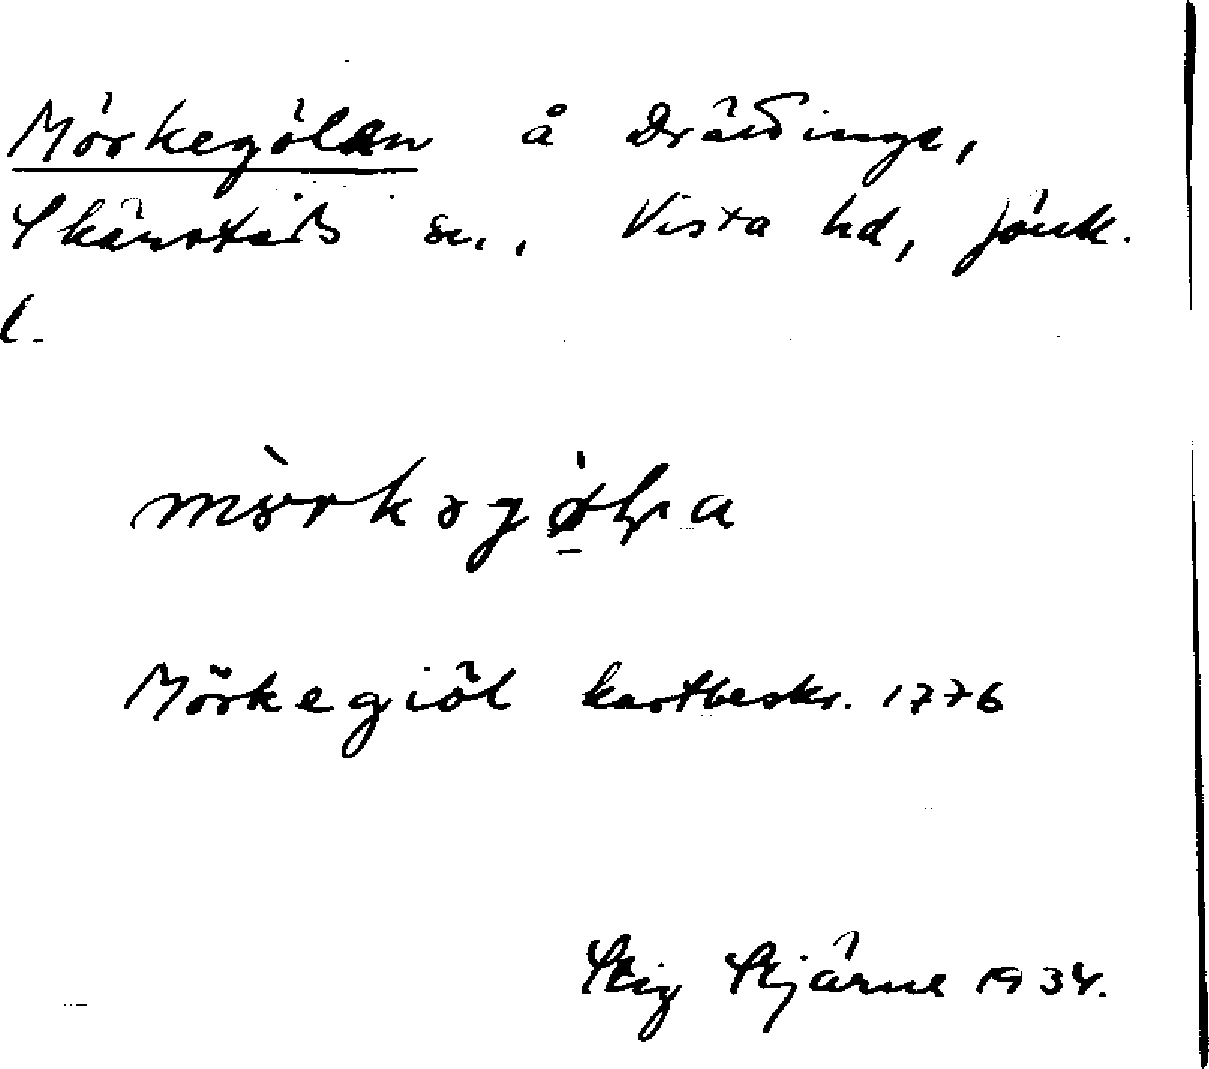 Mörkegölen å Drättinge,
Skärstads sn., Vista hd, Jönk.
l.
Mörkegiöl kartbeskr. 1776
Stig Stjärne 1934.